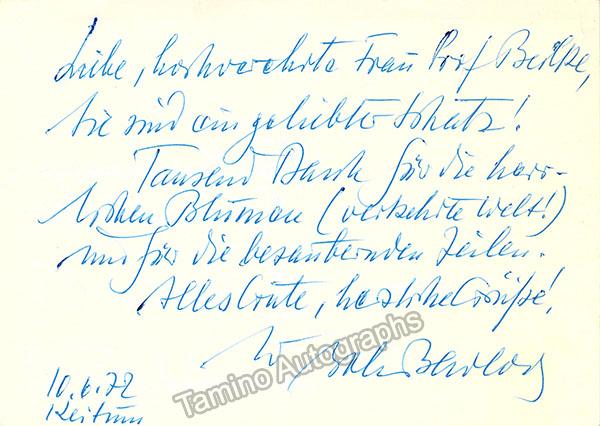 Liebe, hochverehrte Frau Prof Beilke,
Sie sind ein geliebter Schatz!
Tausend Dank für die herr-
lichen Blumen (verkehrte Welt!)
und für die bezaubernden Zeilen.
Alles Gute, herzliche Grüße!
Ihr Boleslaw Barlog
Tamino Autographs
10.6.72
Keitum